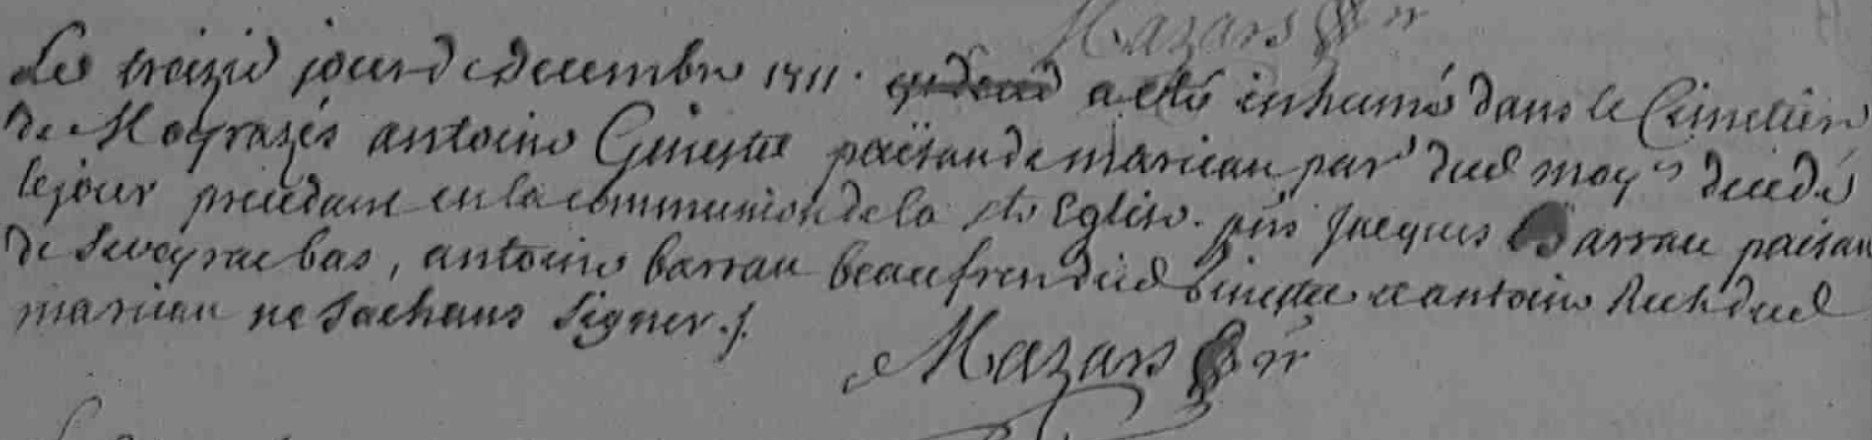 Mazars
Le treizie jour de decembre 1711. a esté inhumé dans le Cimetiere
de Moyrazés antoine Gineste païsan de marieau par^e dud moy^s decedé
le jour precedant en la communion de la s^te Eglise. pñs Jacques Barrau païsan
de Seveyrac bas, antoine barrau beaufrere dud Gineste et antoine dud
marieau ne sachans signer./.
Mazars